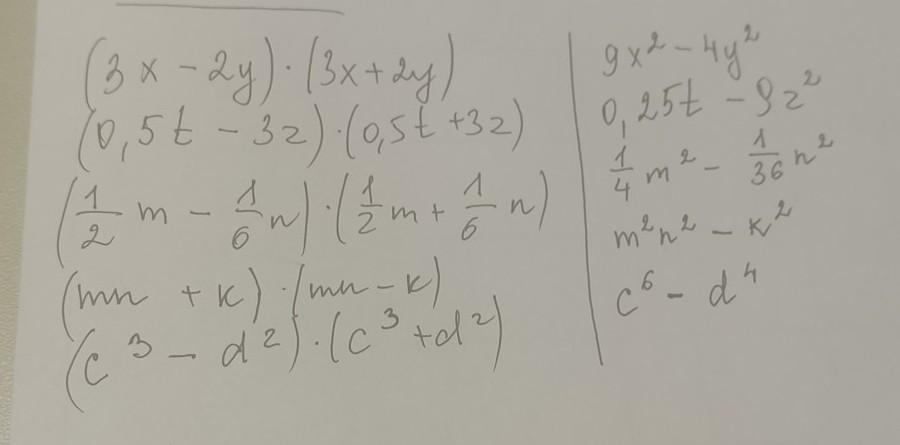 (3x - 2y) · (3x + 2y)
(0,5t - 3z) · (0,5t + 3z)
(1/2 m - 1/6 n) · (1/2 m + 1/6 n)
(mn + k) · (mn - k)
(c³ - d²) · (c³ + d²)
9x² - 4y²
0,25t - 9z²
1/4 m² - 1/36 n²
m²n² - k²
c⁶ - d⁴